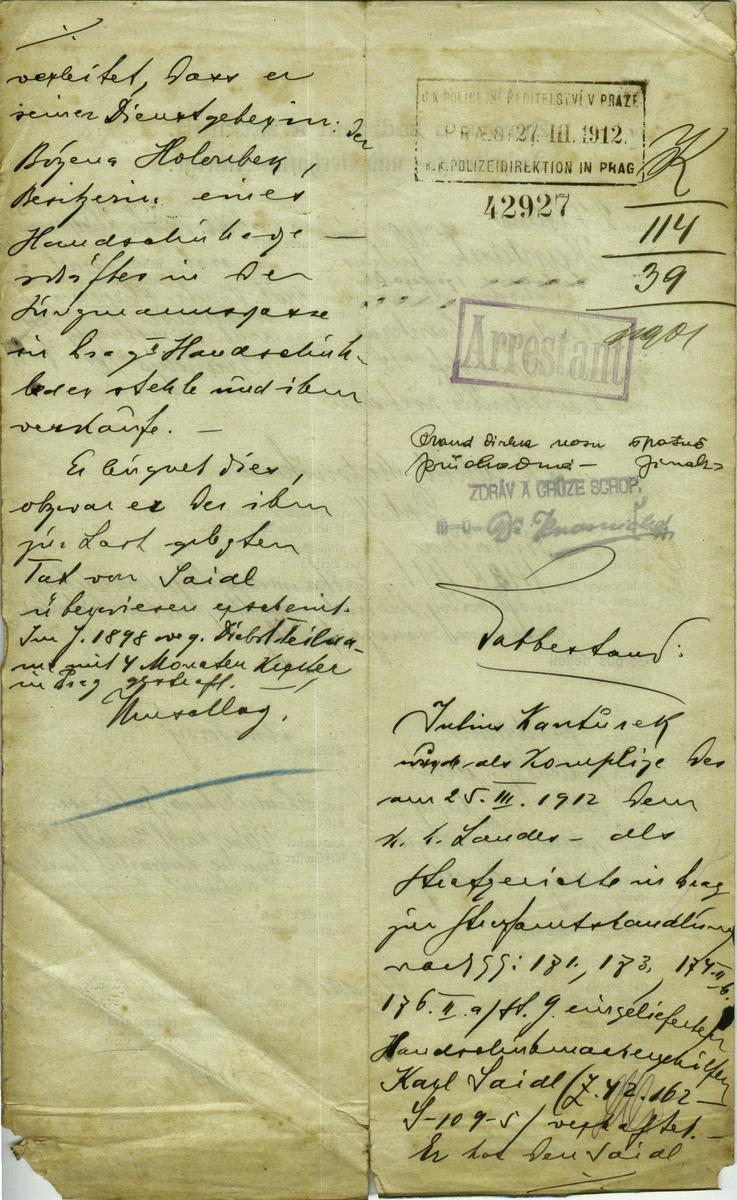 C.K. POLICEJNÍ ŘEDITELSTVÍ V PRAZE
PRAES. 27. III. 1912.
K.K. POLIZEIDIREKTION IN PRAG
42927
K
114
39
Arrestant
ZDRÁV A CHŮZE SCHOP.
Dr.
Tatbestand:
Julius Kantůrek
wurde als Komplize des
am 25. III. 1912 dem
k. k. Landes- als
Strafgerichte in Prag
zur Strafamtshandlung
nach §§: 171., 173, 174.II b.
176. II. a/ St. G. eingelieferten
Handschuhmachergehilfen
Karl Saidl (Z. 42.162
S-109-5/ verhaftet. –
Er hat den Saidl
verleitet, dass er
seiner Dienstgeberin: der
Božena Holoubek,
Besitzerin eines
Handschuhge-
schäftes in der
Jungmannsgasse
in Prag Handschuh-
leder stehle und ihm
verkaufe. –
Er leugnet dies,
obzwar er der ihm
zur Last gelegten
Tat von Saidl
überwiesen erscheint.
Im J. 1898 weg. Diebst.Teilna-
me mit 4 Monaten Kerker
in Prag gestraft.